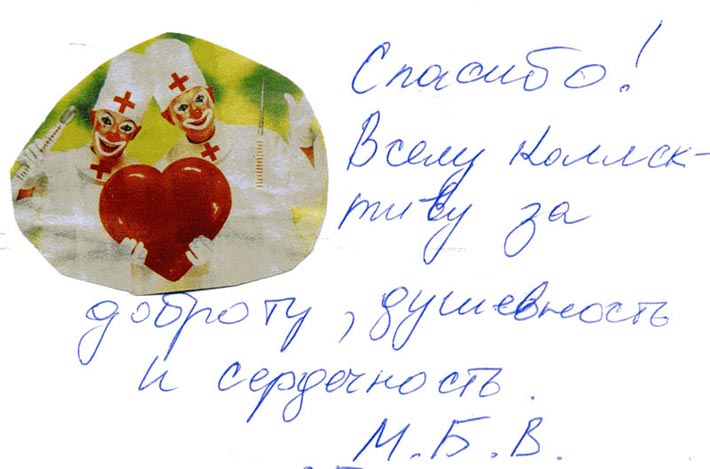 Спасибо!
Всему коллек-
тиву за
доброту, душевность
и сердечность.
М.Б.В.